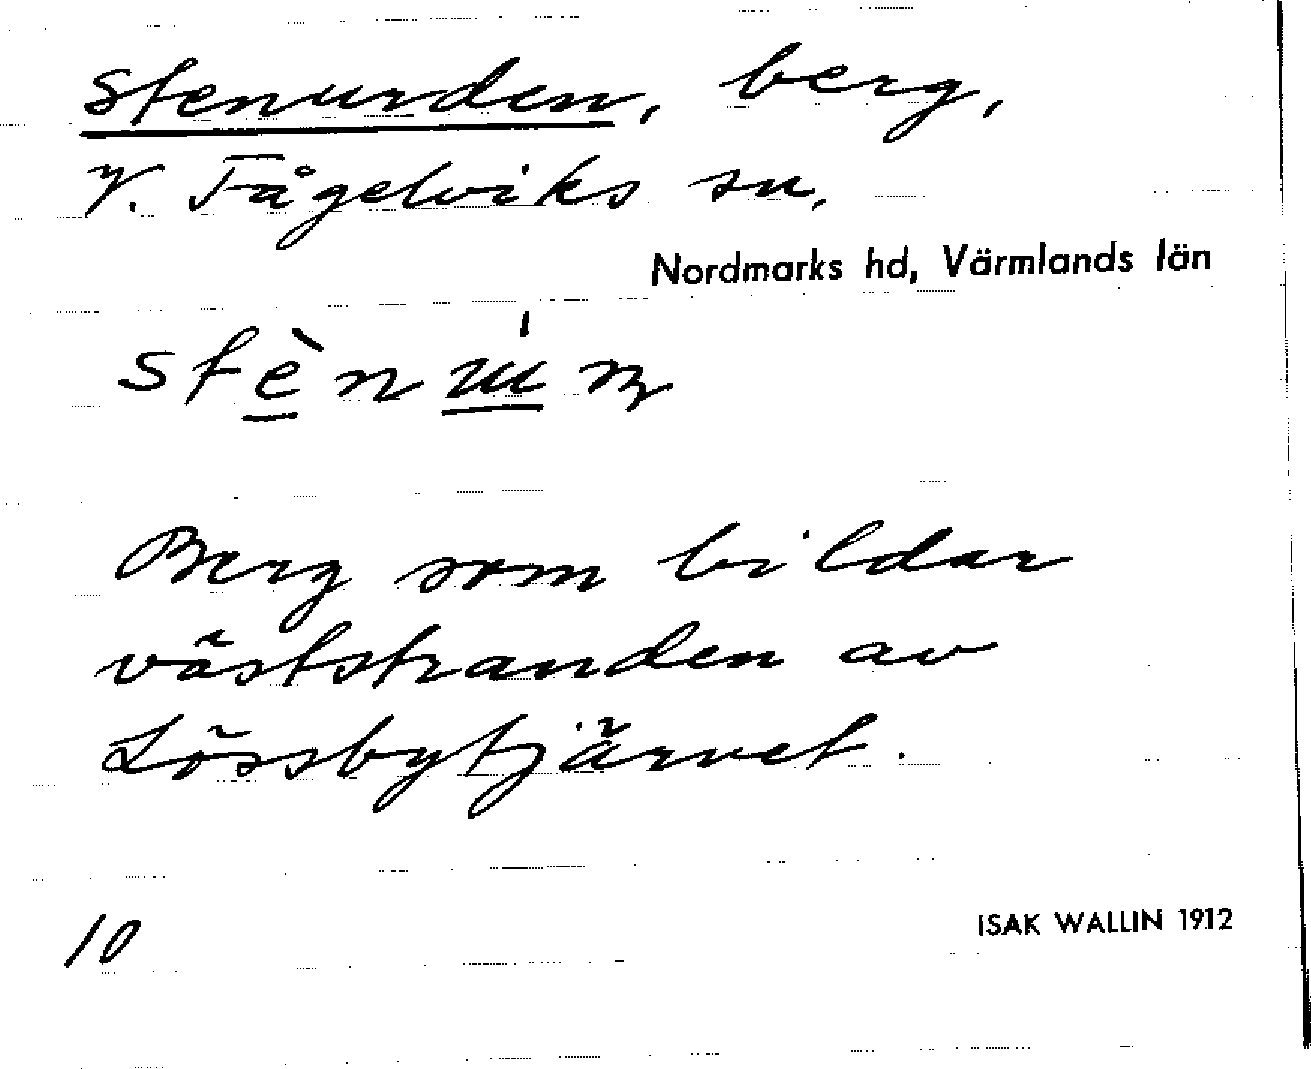 Stenurden, berg,
V. Fågelviks sn,
Nordmarks hd, Värmlands län
Berg som bildar
väststranden av
Lössbytjärnet.
10
ISAK WALLIN 1912